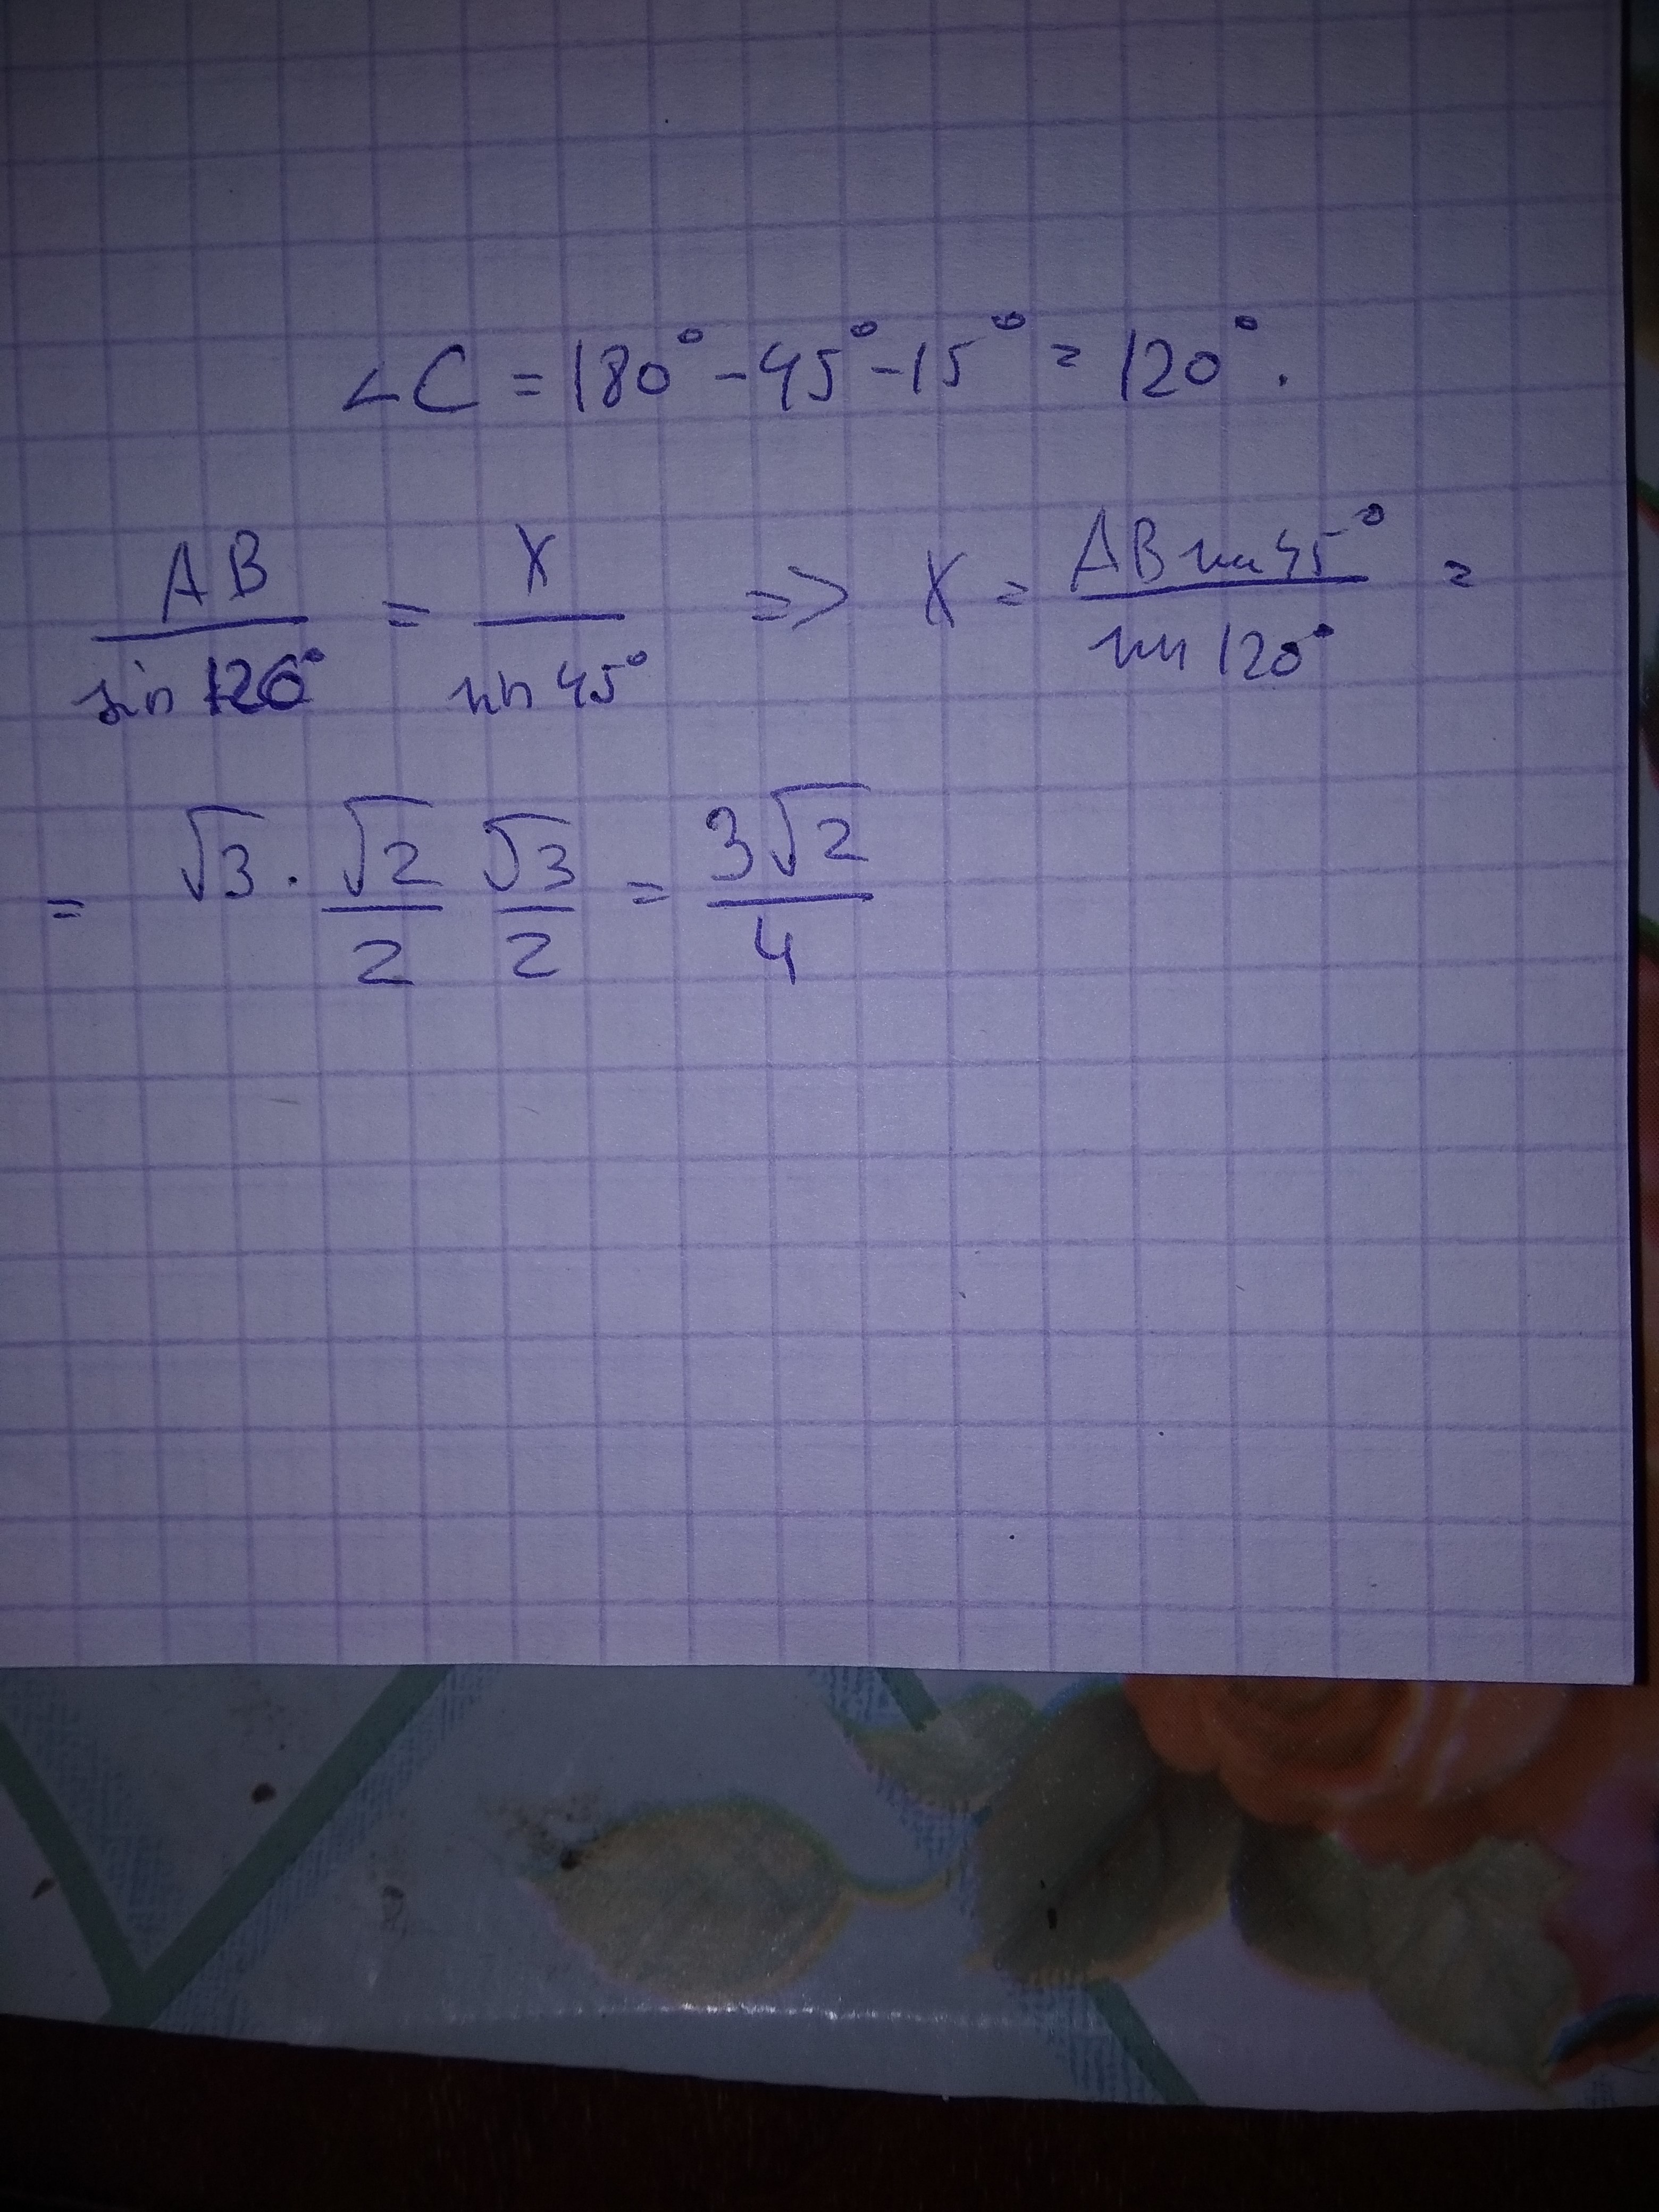 ∠C = 180° - 45° - 15° = 120°.
AB / sin 120° = X / sin 45° => X = AB sin 45° / sin 120° =
= √3 · √2/2 √3/2 = 3√2/4